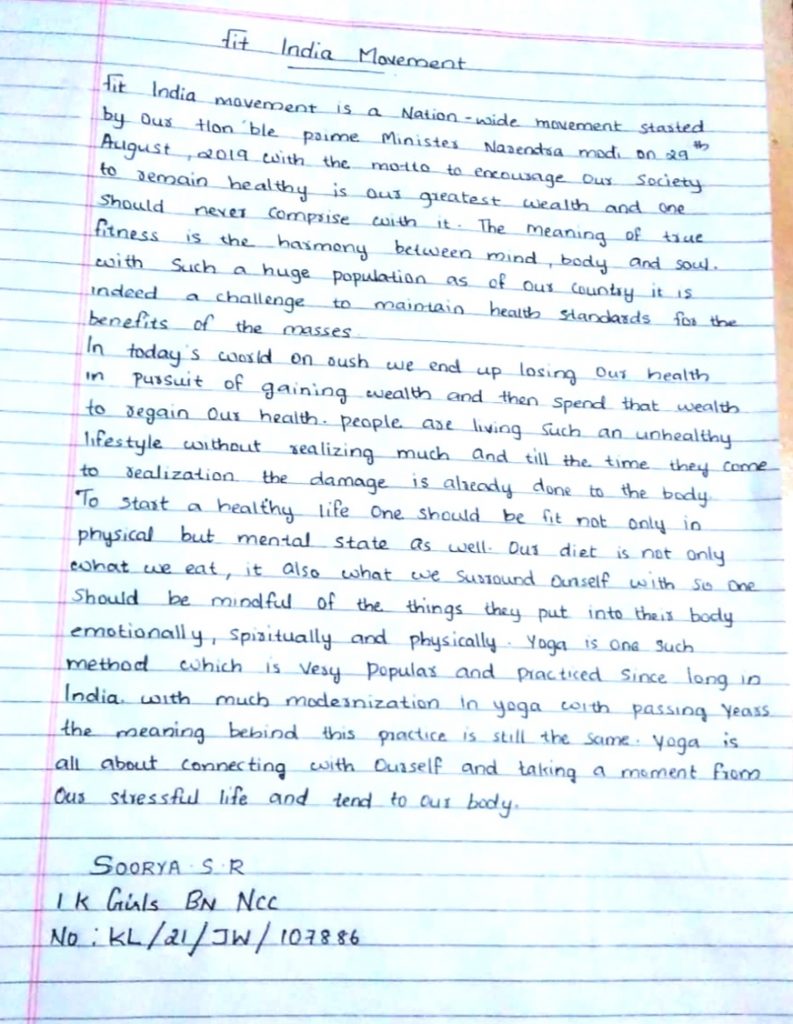 Fit India Movement
Fit India movement is a Nation-wide movement started
by our Hon'ble prime Minister Narendra modi on 29th
August, 2019 with the motto to encourage our Society
to remain healthy is our greatest wealth and one
should never comprise with it. The meaning of true
fitness is the harmony between mind, body and soul.
with such a huge population as of our country it is
indeed a challenge to maintain health standards for the
benefits of the masses
In today's world on rush we end up losing our health
in pursuit of gaining wealth and then spend that wealth
to regain our health. people are living such an unhealthy
lifestyle without realizing much and till the time they come
to realization the damage is already done to the body.
To start a healthy life one should be fit not only in
physical but mental state as well. Our diet is not only
what we eat, it also what we surround ourself with so one
should be mindful of the things they put into their body
emotionally, spiritually and physically. Yoga is one such
method which is very popular and practiced since long in
India. with much modernization in yoga with passing years
the meaning behind this practice is still the same. Yoga is
all about connecting with ourself and taking a moment from
our stressful life and tend to our body.
SOORYA S.R
1 K Girls BN NCC
No : KL/21/JW/107886